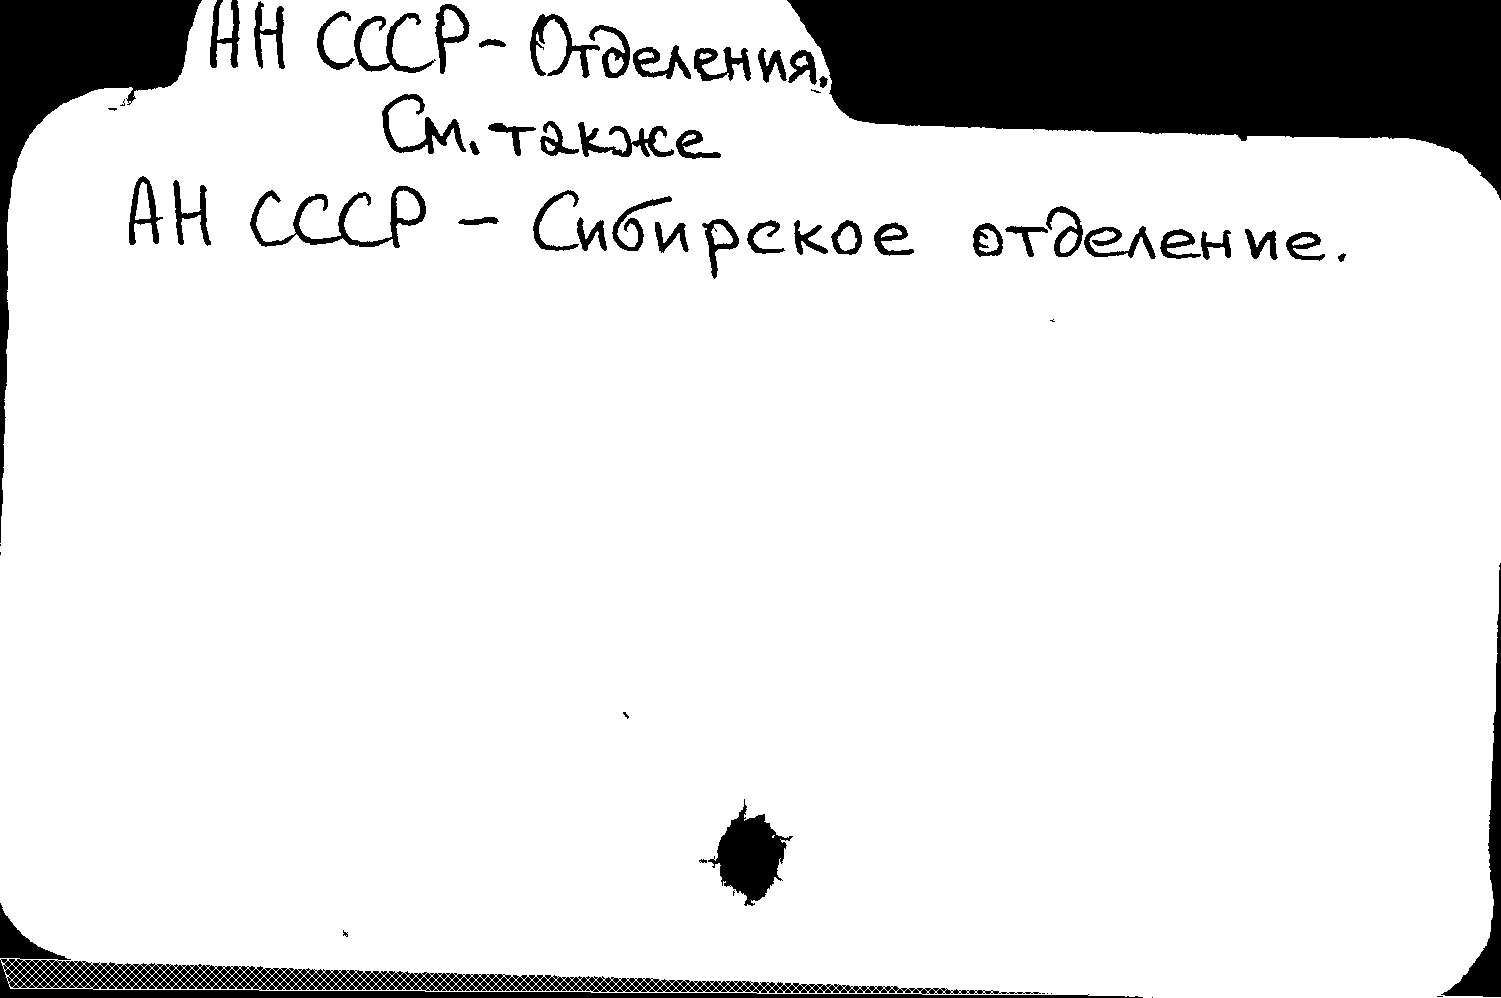 АН СССР - Отделения.
См. также
АН СССР - Сибирское отделение.